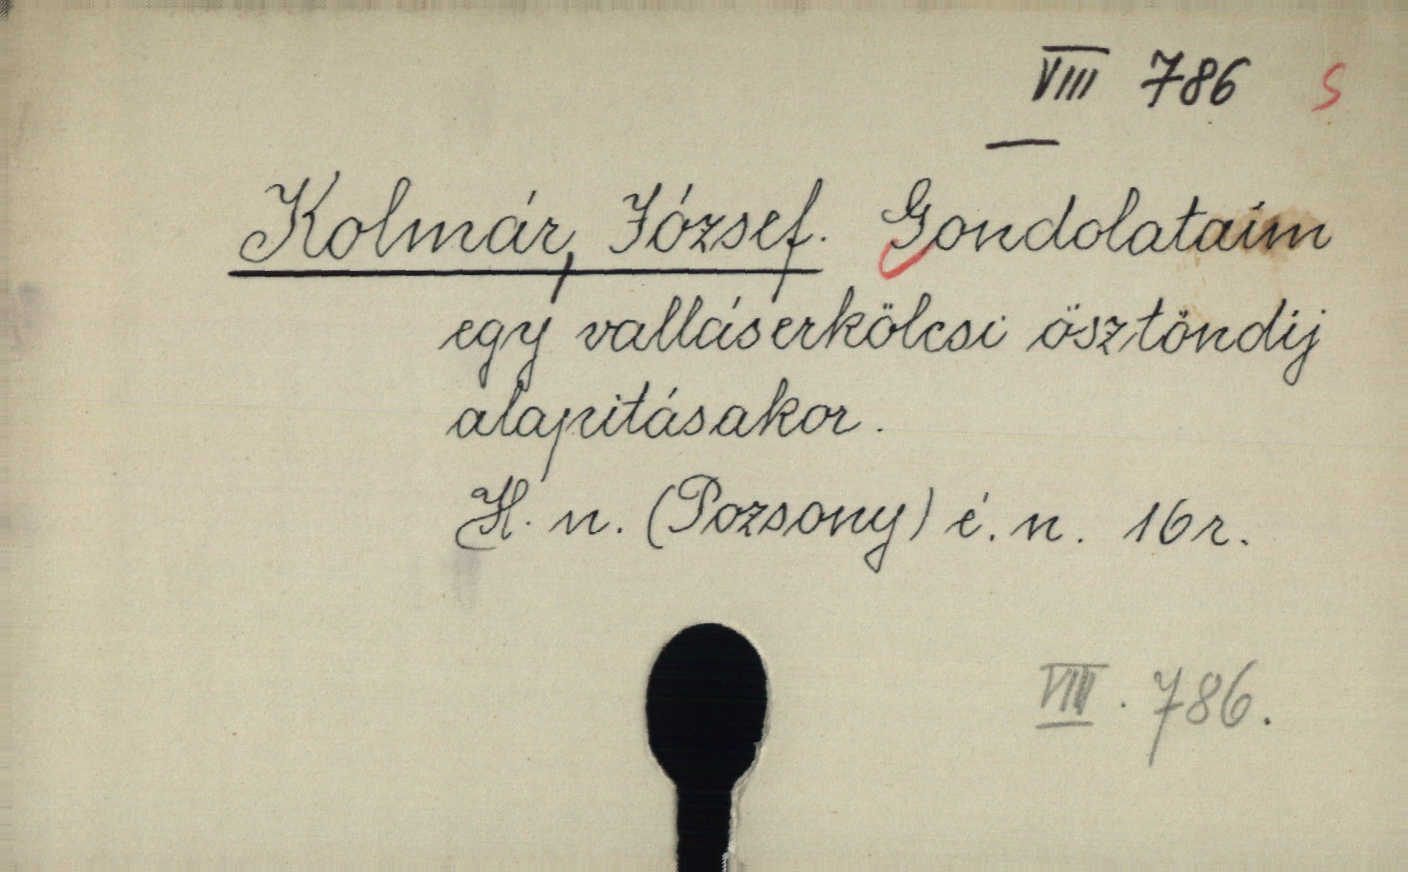 VIII 786 S
Kolmár, József. Gondolataim
egy valláserkölcsi ösztöndij
alapitásakor.
H. n. (Pozsony) é. n. 16 r.
VIII. 786.